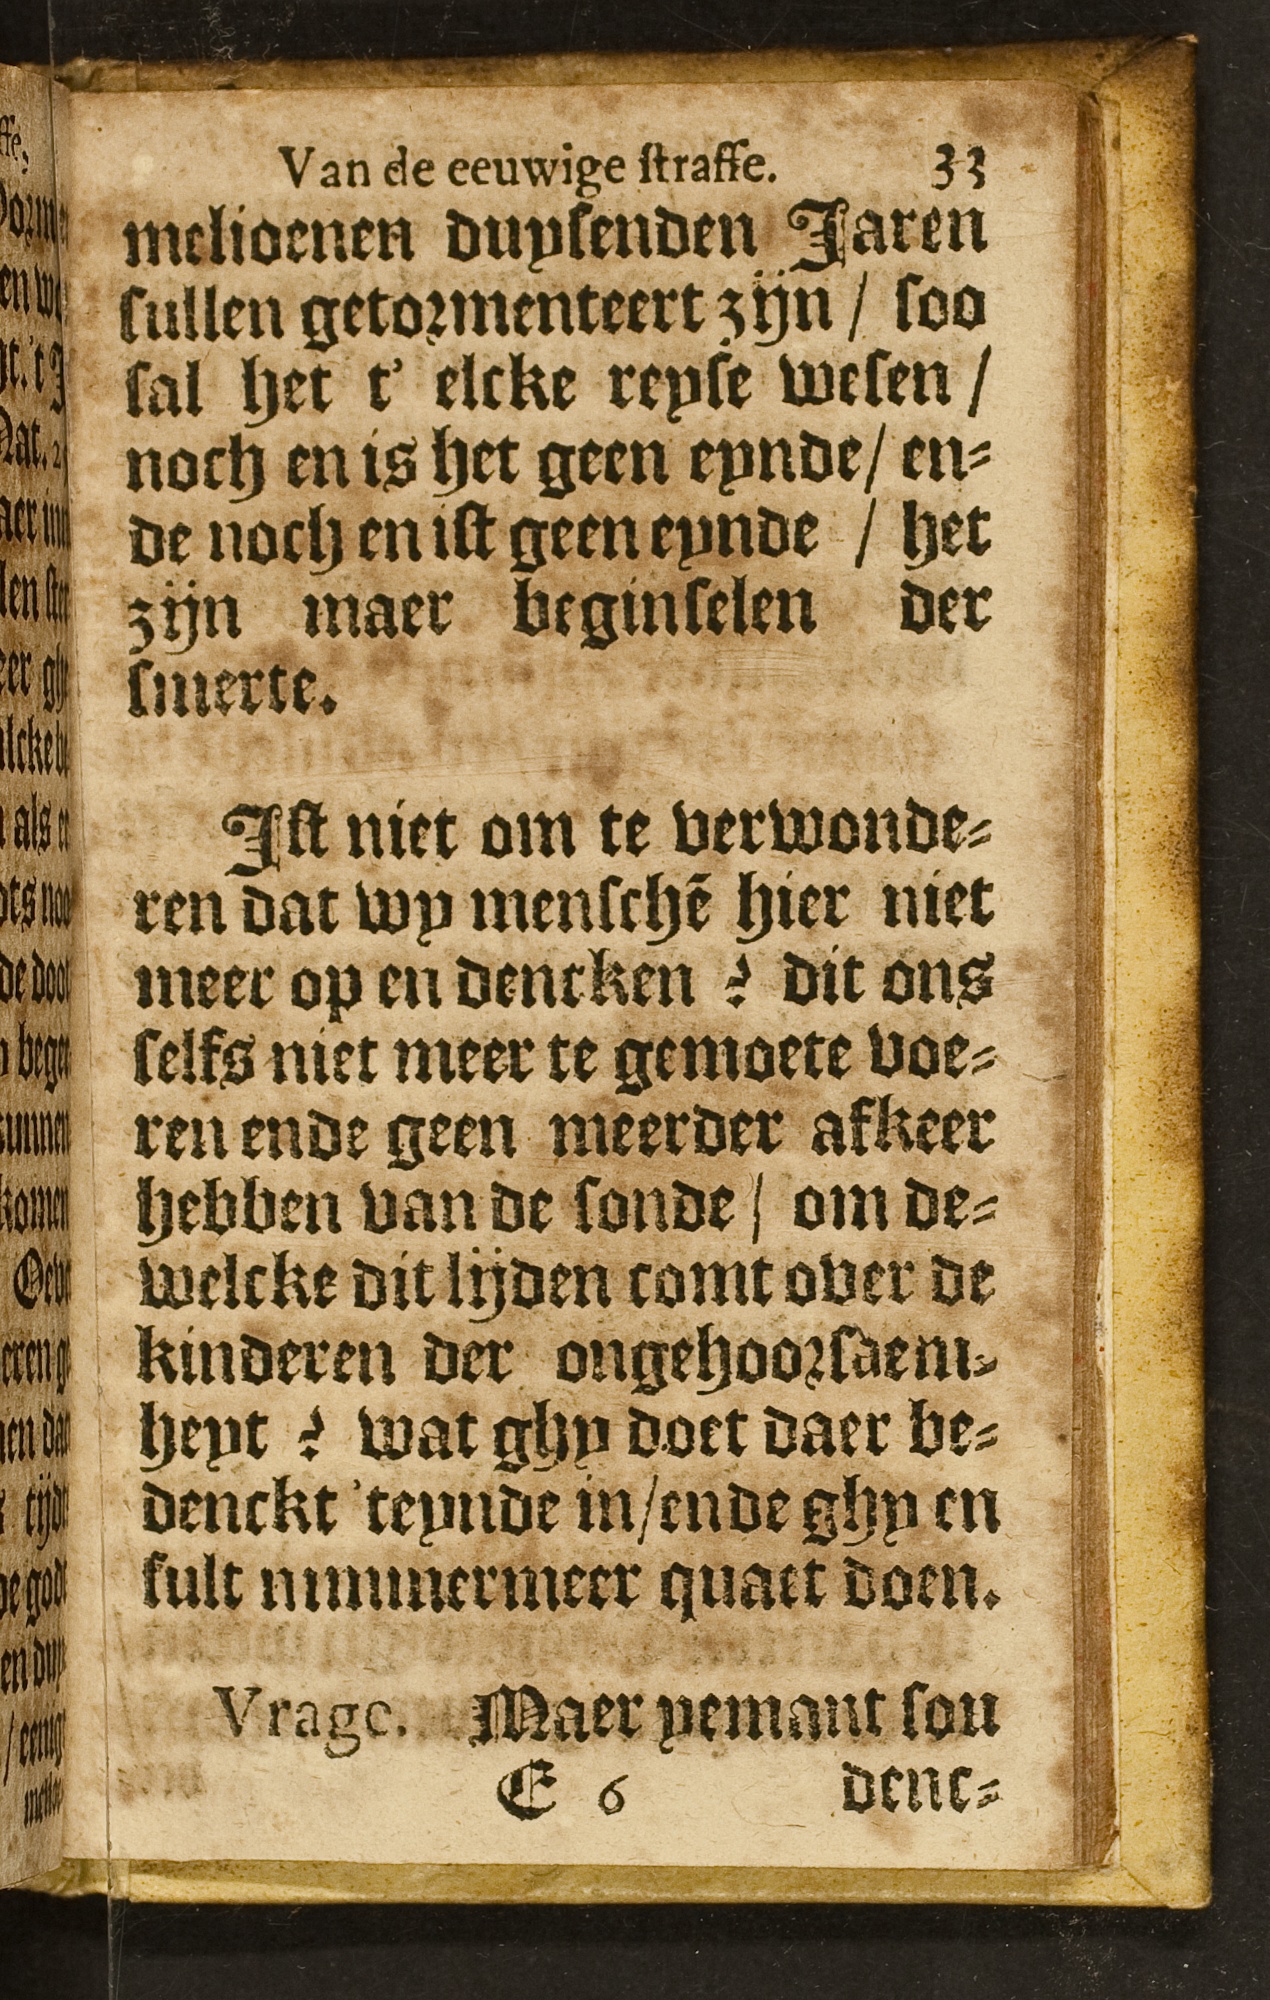 Van de eeuwige straffe. 33
melioenen duysenden Jaren
sullen getormenteert zijn / soo
sal het t' elcke reyse wesen /
noch en is het geen eynde / en-
de noch en ist geen eynde / het
zijn maer beginselen der
smerte.
Ist niet om te verwonde-
ren dat wy menschē hier niet
meer op en dencken ? dit ons
selfs niet meer te gemoete voe-
ren ende geen meerder afkeer
hebben van de sonde / om de-
welcke dit lijden comt over de
kinderen der ongehoorsaem-
heyt ? wat ghy doet daer be-
denckt 'teynde in / ende ghy en
sult nimmermeer quaet doen.
Vrage. Maer yemant sou
E 6 denc-